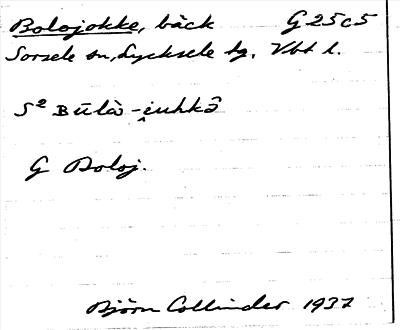 Bolojokke, bäck G 25 c 5
Sorsele sn, Lycksele tg. Vbt l.
S² Būlà̄-i̯uhkâ
G Boloj.
Björn Collinder 1937